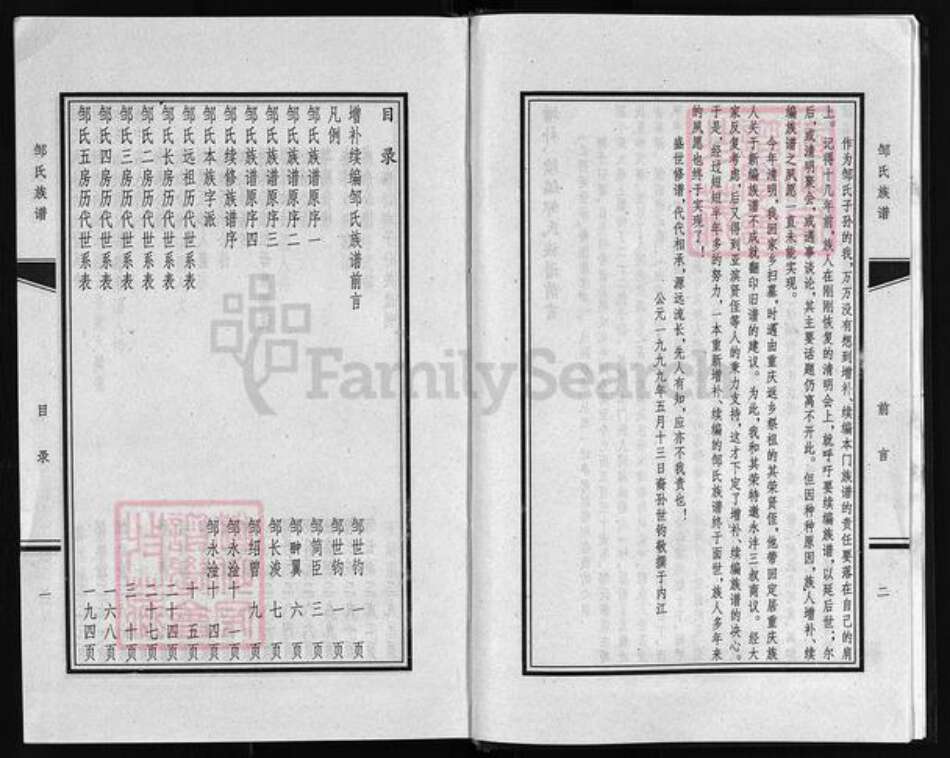 邹氏族谱
前言
二
作为邹氏子孙的我，万万没有想到增补、续编本门族谱的责任要落在自己的肩
上。记得十几年前，族人在刚刚恢复的清明会上，就呼吁要续编族谱，以延后世；尔
后，或清明聚会，或遇事谈论，其主要话题仍离不开此。但因种种原因，族人增补、续
编族谱之夙愿一直未能实现。
今年清明，我回家乡扫墓，时遇由重庆返乡祭祖的其荣贤侄，他带回定居重庆族
人关于新编族谱不成就翻印旧谱的建议。为此，我和其荣特邀永沣三叔商议。经大
家反复考虑，后又得到亚滨贤侄等人的秉力支持，这才下定了增补、续编族谱的决心。
于是，经过短短半年多的努力，一本重新增补、续编的邹氏族谱终于面世，族人多年来
的夙愿也终于实现了！
盛世修谱，代代相承，源远流长，先人有知，应亦不我责也！
公元一九九九年五月十三日裔孙世钧敬撰于内江
邹氏族谱
目录
一
目录
增补续编邹氏族谱前言 邹世钧 一页
凡例 邹世钧 一页
邹氏族谱原序一 邹简臣 三页
邹氏族谱原序二 邹翀翼 六页
邹氏族谱原序三 邹长浚 七页
邹氏族谱原序四 邹绍曾 九页
邹氏续修族谱序 邹永淦 十一页
邹氏本族字派 邹永淦 十四页
邹氏远祖历代世系表 十五页
邹氏长房历代世系表 二十四页
邹氏二房历代世系表 二十七页
邹氏三房历代世系表 三十页
邹氏四房历代世系表 一六八页
邹氏五房历代世系表 一九四页
FamilySearch